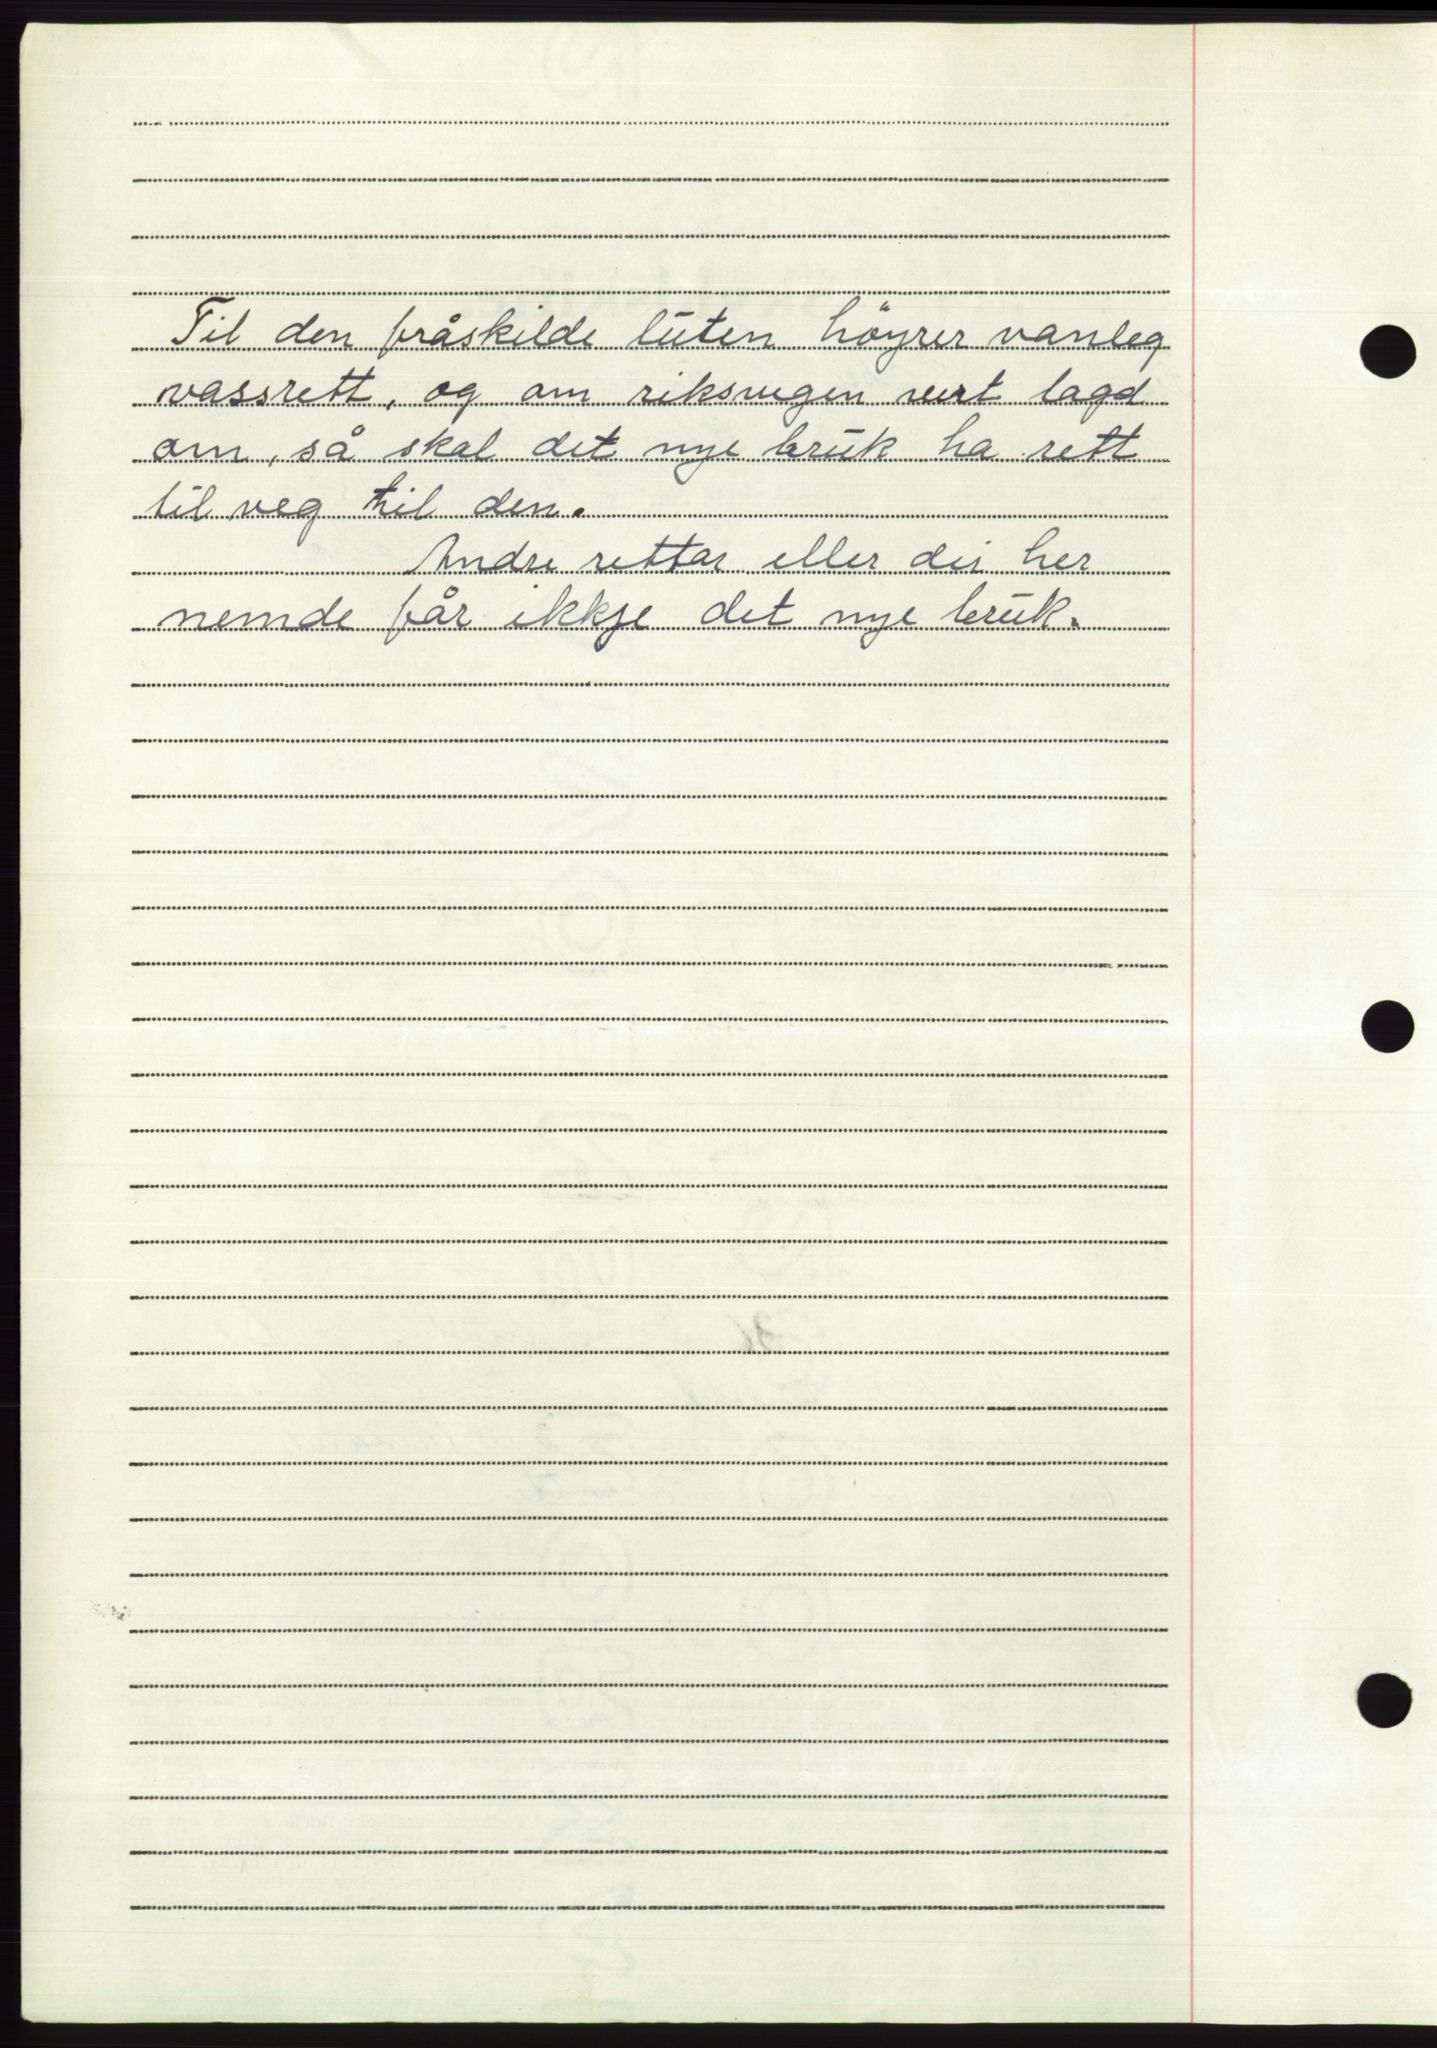 Til den fråskilde luten höyrer vanleg
vassrett, og om riksvegen vert lagd
om, så skal det nye bruk ha rett
til veg til den.
Andre rettar eller dei her
nemde får ikkje det nye bruk.